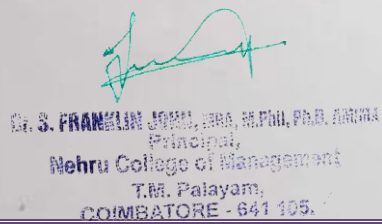 Dr. S. FRANKLIN JOHN, MBA, M.Phil, Ph.D,
Principal,
Nehru College of Management
T.M. Palayam,
COIMBATORE - 641 105.